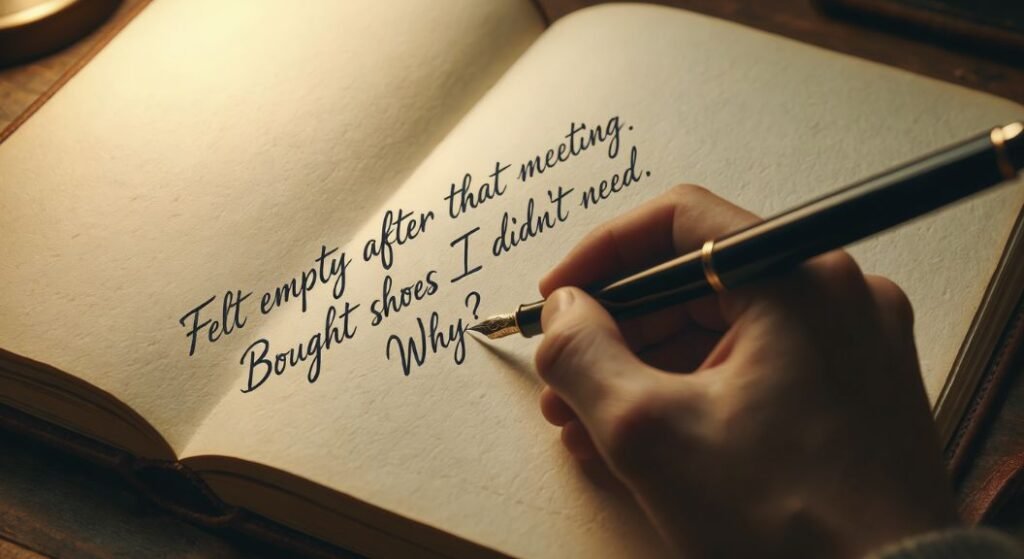 Felt empty after that meeting.
Bought shoes I didn't need.
Why?